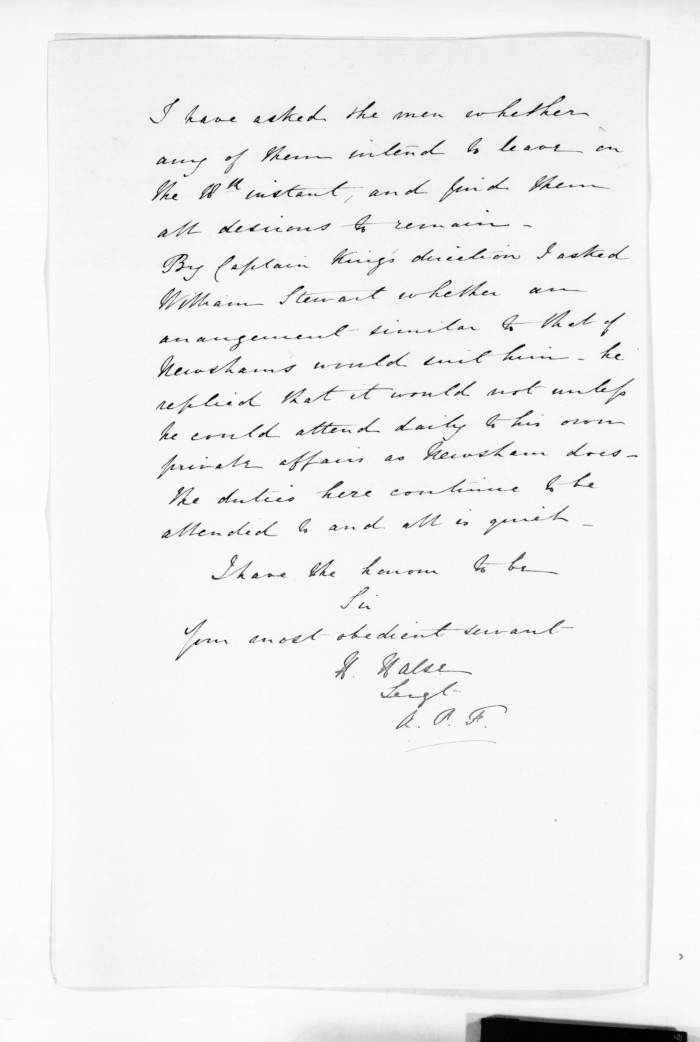 I have asked the men whether
any of them intend to leave on
the 18th instant, and find them
all desirous to remain -
By Captain King's direction I asked
William Stewart whether an
arrangement similar to that of
Newshams would suit him - he
replied that it would not unless
he could attend daily to his own
private affairs as Newsham does -
The duties here continue to be
attended to and all is quiet -
I have the honour to be
Sir
Your most obedient servant
H. Halse
Sergt
A. P. F.